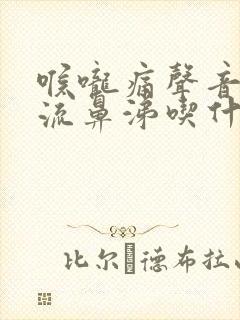 喉嚨痛聲音
流鼻涕喫什
比尔德布拉